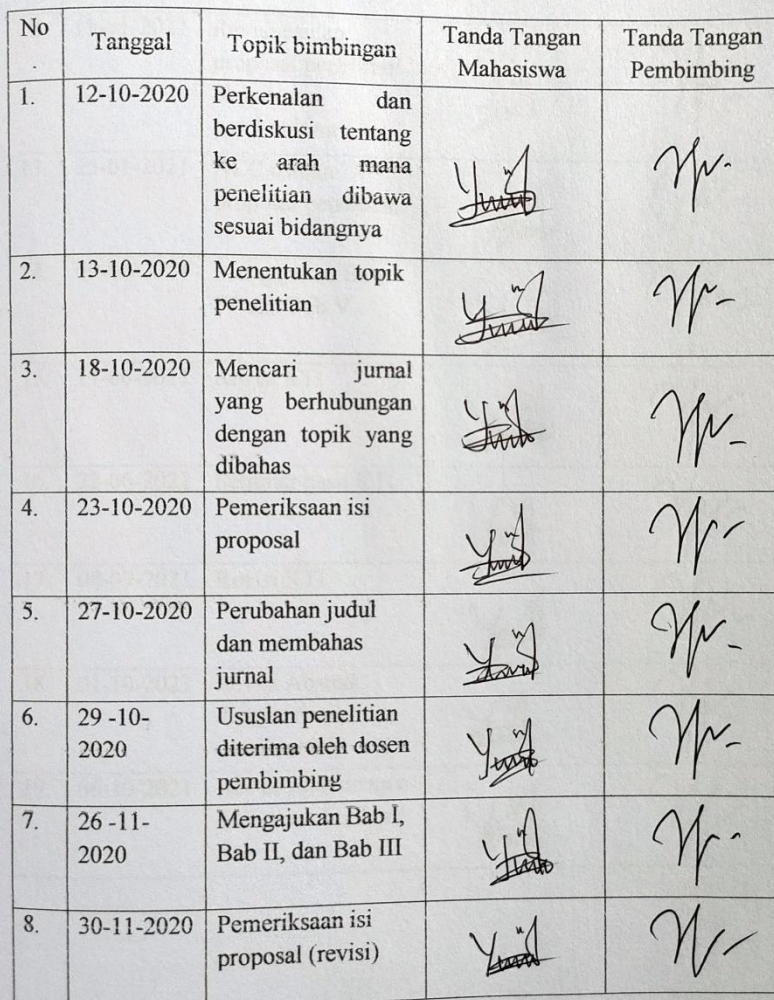 No
.
Tanggal
Topik bimbingan
Tanda Tangan
Mahasiswa
Tanda Tangan
Pembimbing
1.
12-10-2020
Perkenalan dan
berdiskusi tentang
ke arah mana
penelitian dibawa
sesuai bidangnya
2.
13-10-2020
Menentukan topik
penelitian
3.
18-10-2020
Mencari jurnal
yang berhubungan
dengan topik yang
dibahas
4.
23-10-2020
Pemeriksaan isi
proposal
5.
27-10-2020
Perubahan judul
dan membahas
jurnal
6.
29 -10-
2020
Ususlan penelitian
diterima oleh dosen
pembimbing
7.
26 -11-
2020
Mengajukan Bab I,
Bab II, dan Bab III
8.
30-11-2020
Pemeriksaan isi
proposal (revisi)